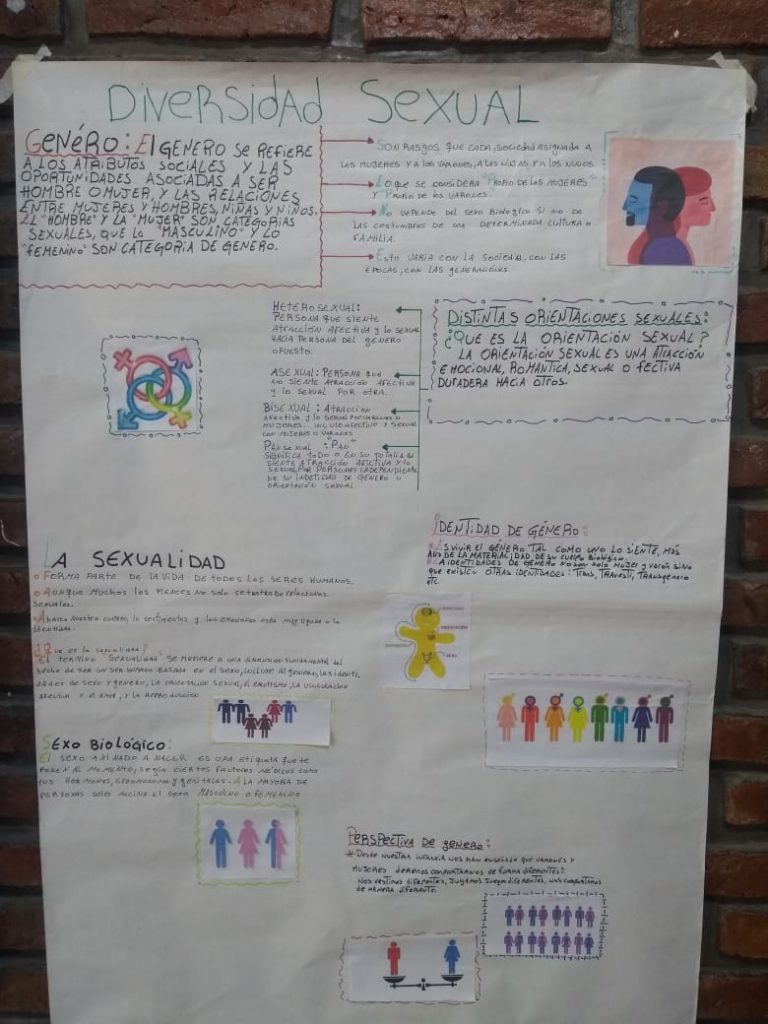 DIVERSIDAD SEXUAL
GENÉRO: El GENERO SE REFIERE
A LOS ATRIBUTOS SOCIALES Y LAS
OPORTUNIDADES ASOCIADAS A SER
HOMBRE O MUJER, Y LAS RELACIONES
ENTRE MUJERES Y HOMBRES, NIÑAS Y NIÑOS.
EL "HOMBRE" Y LA "MUJER" SON CATEGORIAS
SEXUALES, QUE LO "MASCULINO" Y LO
"FEMENINO" SON CATEGORIA DE GENERO.
SON RASGOS QUE CADA SOCIEDAD ASIGNADA A
LAS MUJERES Y A LOS VARONES, A LAS NIÑAS Y A LOS NIÑOS.
LO QUE SE CONSIDERA "PROPIO DE LAS MUJERES"
Y "PROPIO DE LOS VARONES"
NO DEPENDE DEL SEXO BIOLOGICO SI NO DE
LAS COSTUMBRES DE UNA DETERMINADA CULTURA O
FAMILIA.
ESTO VARIA CON LA SOCIEDAD, CON LAS
EPOCAS, CON LAS GENERACIONES.
DISTINTAS ORIENTACIONES SEXUALES:
¿QUE ES LA ORIENTACIÓN SEXUAL?
LA ORIENTACIÓN SEXUAL ES UNA ATRACCIÓN
EMOCIONAL, ROMANTICA, SEXUAL O FECTIVA
DURADERA HACIA OTROS.
HETEROSEXUAL:
PERSONA QUE SIENTE
ATRACCIÓN AFECTIVA Y LO SEXUAL
HACIA PERSONA DEL GENERO
OPUESTO.
ASEXUAL: PERSONA QUE
NO SIENTE ATRACCIÓN AFECTIVA
Y LO SEXUAL POR OTRA.
BISEXUAL: ATRACCION
AFECTIVA Y LO SEXUAL POR VARONES O
MUJERES. AFECTIVO Y SEXUAL
CON MUJERES O VARONES
PANSEXUAL: "PAN"
SIGNIFICA TODO O EN SU TOTALIDAD
SIENTE ATRACCIÓN AFECTIVA Y LO
SEXUAL POR PERSONAS INDEPENDIENTE
DE SU INDETIDAD DE GÉNERO U
ORIENTACIÓN SEXUAL.
LA SEXUALIDAD
FORMA PARTE DE LA VIDA DE TODOS LOS SERES HUMANOS.
AUNQUE MUCHOS LOS PIENCES NO SOLO DE RELACIONES
SEXUALES.
ABARCA NUESTRO CUERPO, LO SENTIMIENTOS Y LAS EMOCIONES ESTA MUY LIGADA A LA
IDENTIDAD.
¿QUE ES LA SEXUALIDAD?
EL TERMINO "SEXUALIDAD" SE REFIERE A UNA DIMENSION FUNDAMENTAL DEL
HECHO DE SER UN SER HUMANO BASADA EN EL SEXO, INCLUYE AL GENERO, LAS IDENTI
DADES DE SEXO Y GENERO, LA ORIENTACION SEXUAL, EL EROTISMO, LA VINCULACION
AFECTIVA Y EL AMOR, Y LA REPRODUCCION
IDENTIDAD DE GÉNERO:
ES VIVIR EL GÉNERO TAL COMO UNO LO SIENTE, MÁS
ALLÁ DE LA MATERIALIDAD DE SU CUERPO BIOLÓGICO.
LA IDENTIDADES DE GENERO NO SON SOLO MUJER Y VARÓN SINO
QUE EXISTEN OTRAS IDENTIDADES: TRANS, TRAVESTI, TRANSGENERO
ETC.
SEXO BIOLÓGICO:
EL SEXO A NACER ES UNA ETIQUETA QUE TE
PONEN AL MOMENTO, SEGÚN CIERTOS FACTORES MÉDICOS COMO
TUS HORMONAS, CROMOSOMA Y GENITALES. A LA MAYORIA DE
PERSONAS SE LES EL SEXO MASCULINO O FEMENINO
PERSPECTIVA DE GENERO:
DESDE NUESTRA INFANCIA NOS HAN ENSEÑADO QUE VARONES Y
MUJERES DEBEMOS COMPORTARNOS DE FORMA DIFERENTES:
NOS VESTIMOS DIFERENTES, JUGAMOS JUEGOS DIFERENTES, NOS COMPORTAMOS
DE MANERA DIFERENTE.